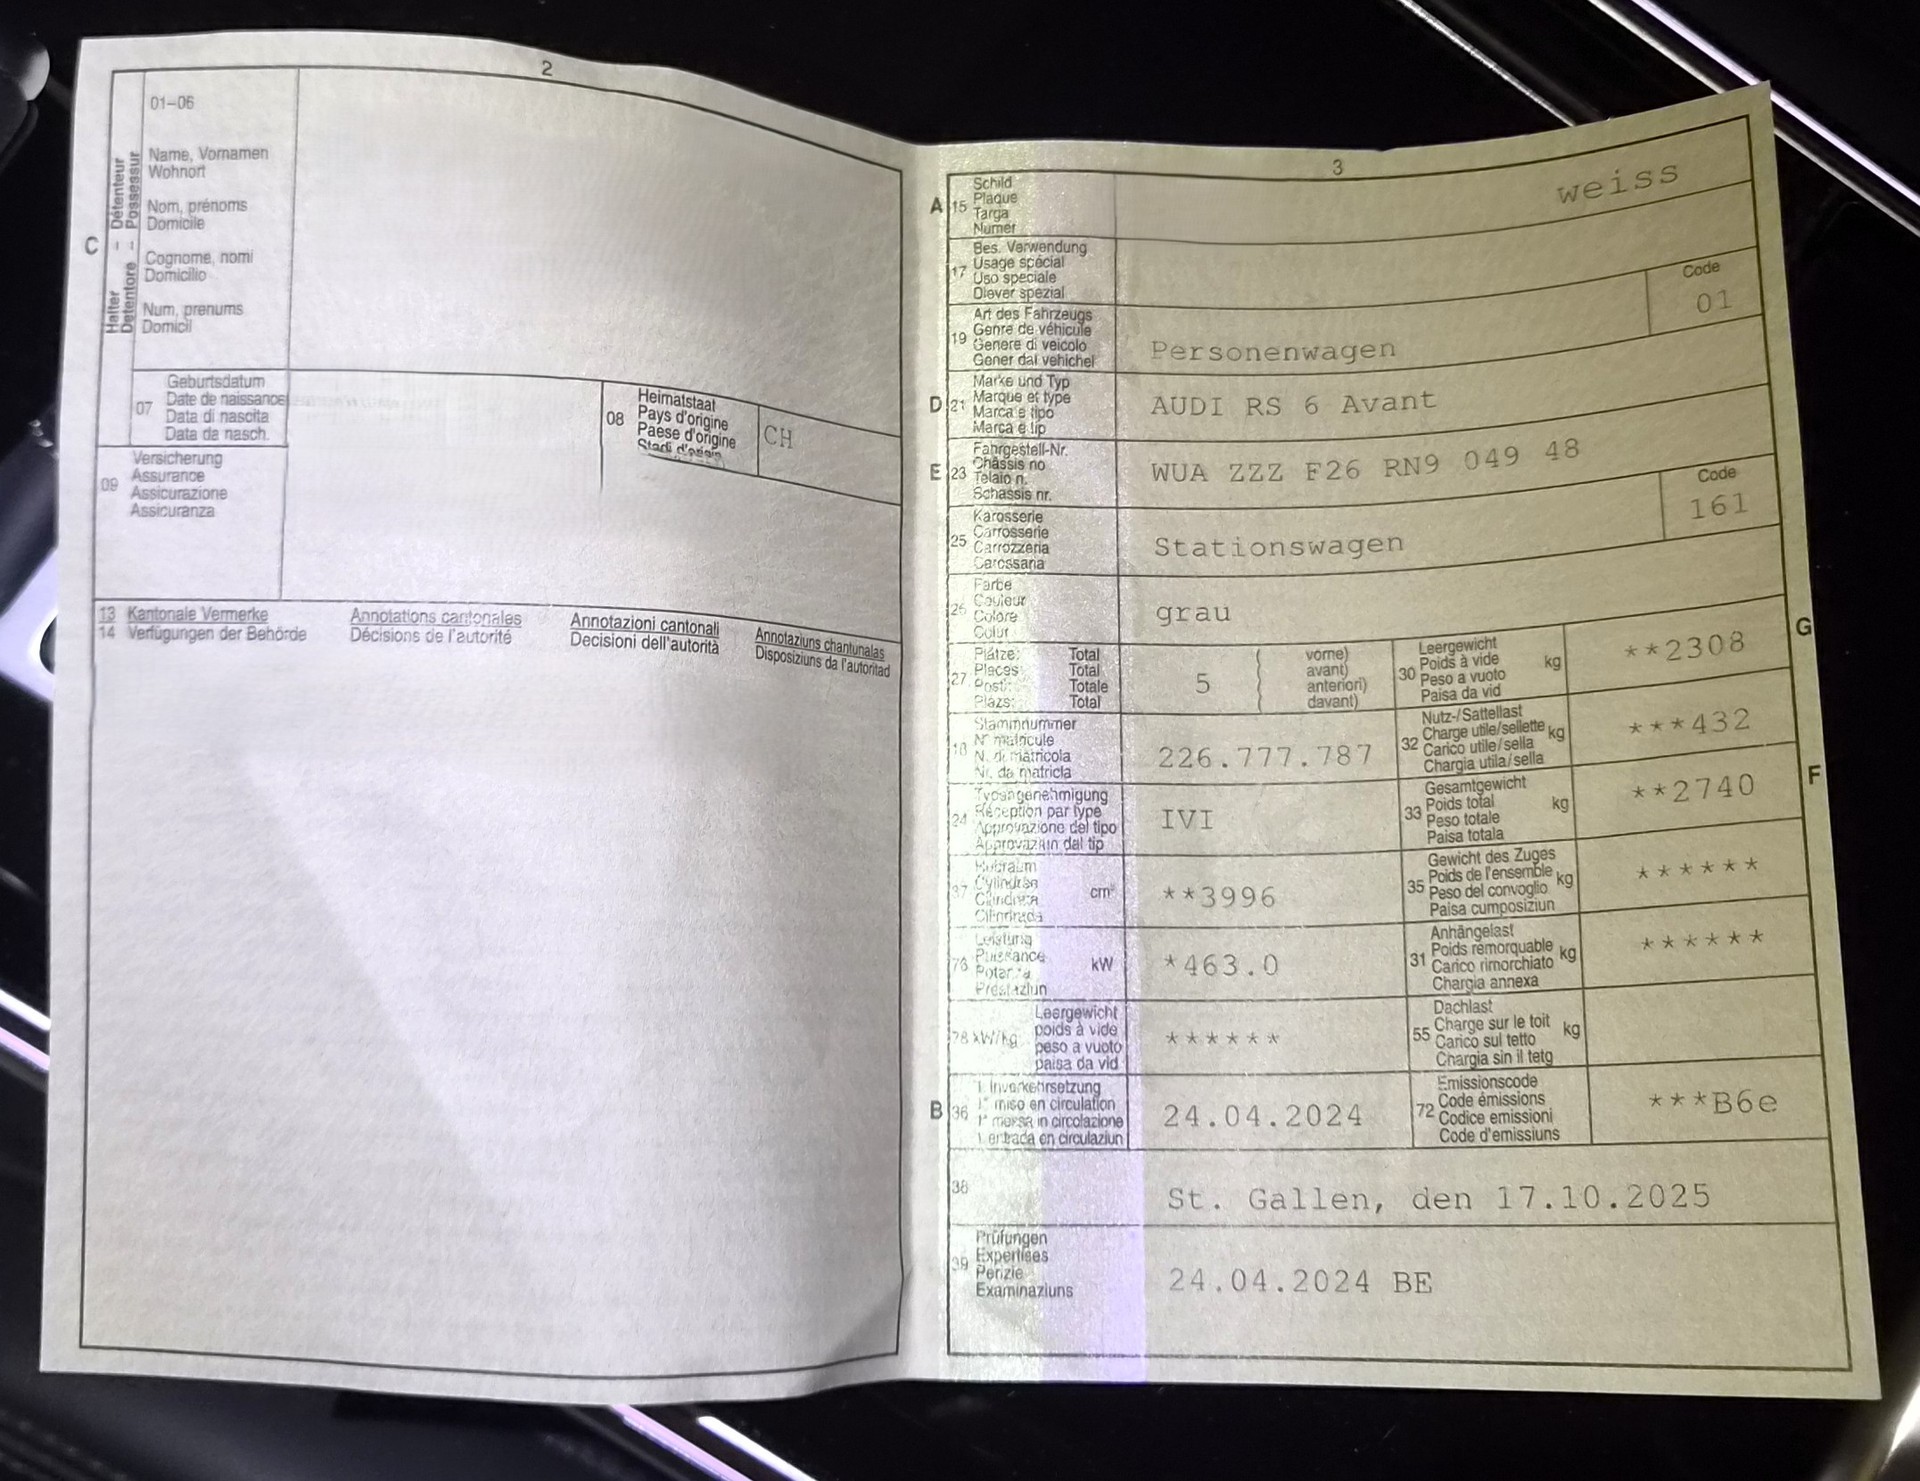 2
01–06
Name, Vornamen
Wohnort
Nom, prénoms
Domicile
Cognome, nomi
Domicilio
Num, prenums
Domicil
C
Halter – Détenteur
Detentore – Possessur
07
Geburtsdatum
Date de naissance
Data di nascita
Data da nasch.
08
Heimatstaat
Pays d'origine
Paese d'origine
Stadi d'origin
CH
09
Versicherung
Assurance
Assicurazione
Assicuranza
13 Kantonale Vermerke Annotations cantonales Annotazioni cantonali Annotaziuns chantunalas
14 Verfügungen der Behörde Décisions de l'autorité Decisioni dell'autorità Disposiziuns da l'autoritad
3
A 15
Schild
Plaque
Targa
Numer
weiss
17
Bes. Verwendung
Usage spécial
Uso speciale
Diever spezial
Code
01
19
Art des Fahrzeugs
Genre de véhicule
Genere di veicolo
Gener dal vehichel
Personenwagen
D 21
Marke und Typ
Marque et type
Marca e tipo
Marca e tip
AUDI RS 6 Avant
E 23
Fahrgestell-Nr.
Châssis no
Telaio n.
Schassis nr.
WUA ZZZ F26 RN9 049 48
25
Karosserie
Carrosserie
Carrozzeria
Carossaria
Stationswagen
Code
161
26
Farbe
Couleur
Colore
Colur
grau
27
Plätze: Total
Places: Total
Posti: Totale
Plazs: Total
5
vorne)
avant)
anteriori)
davant)
30
Leergewicht
Poids à vide
Peso a vuoto
Paisa da vid
kg
**2308
G
18
Stammnummer
N° matricule
N. di matricola
Nr. da matricla
226.777.787
32
Nutz-/Sattellast
Charge utile/sellette
Carico utile/sella
Chargia utila/sella
kg
***432
24
Typengenehmigung
Réception par type
Approvazione del tipo
Approvaziun dal tip
IVI
33
Gesamtgewicht
Poids total
Peso totale
Paisa totala
kg
**2740
F
37
Hubraum
Cylindrée
Cilindrata
Cilindrada
cm³
**3996
35
Gewicht des Zuges
Poids de l'ensemble
Peso del convoglio
Paisa cumposiziun
kg
******
76
Leistung
Puissance
Potenza
Prestaziun
kW
*463.0
31
Anhängelast
Poids remorquable
Carico rimorchiato
Chargia annexa
kg
******
78 kW/kg
Leergewicht
poids à vide
peso a vuoto
paisa da vid
******
55
Dachlast
Charge sur le toit
Carico sul tetto
Chargia sin il tetg
kg
B 36
1. Inverkehrsetzung
1re mise en circulation
1a messa in circolazione
1. entrada en circulaziun
24.04.2024
72
Emissionscode
Code émissions
Codice emissioni
Code d'emissiuns
***B6e
38
St. Gallen, den 17.10.2025
39
Prüfungen
Expertises
Perizie
Examinaziuns
24.04.2024 BE